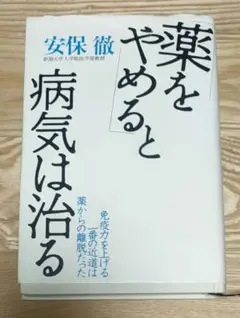 「薬を
やめる」と
病気は治る
安保 徹
新潟大学大学院医学部教授
免疫力を上げる
一番の近道は
薬からの離脱だった